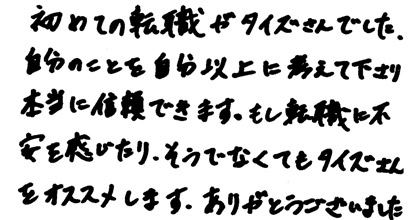 初めての転職がタイズさんでした.
自分のことを自分以上に考えて下さり
本当に信頼できます。もし転職に不
安を感じたり.そうでなくてもタイズさん
をオススメします.ありがとうございました